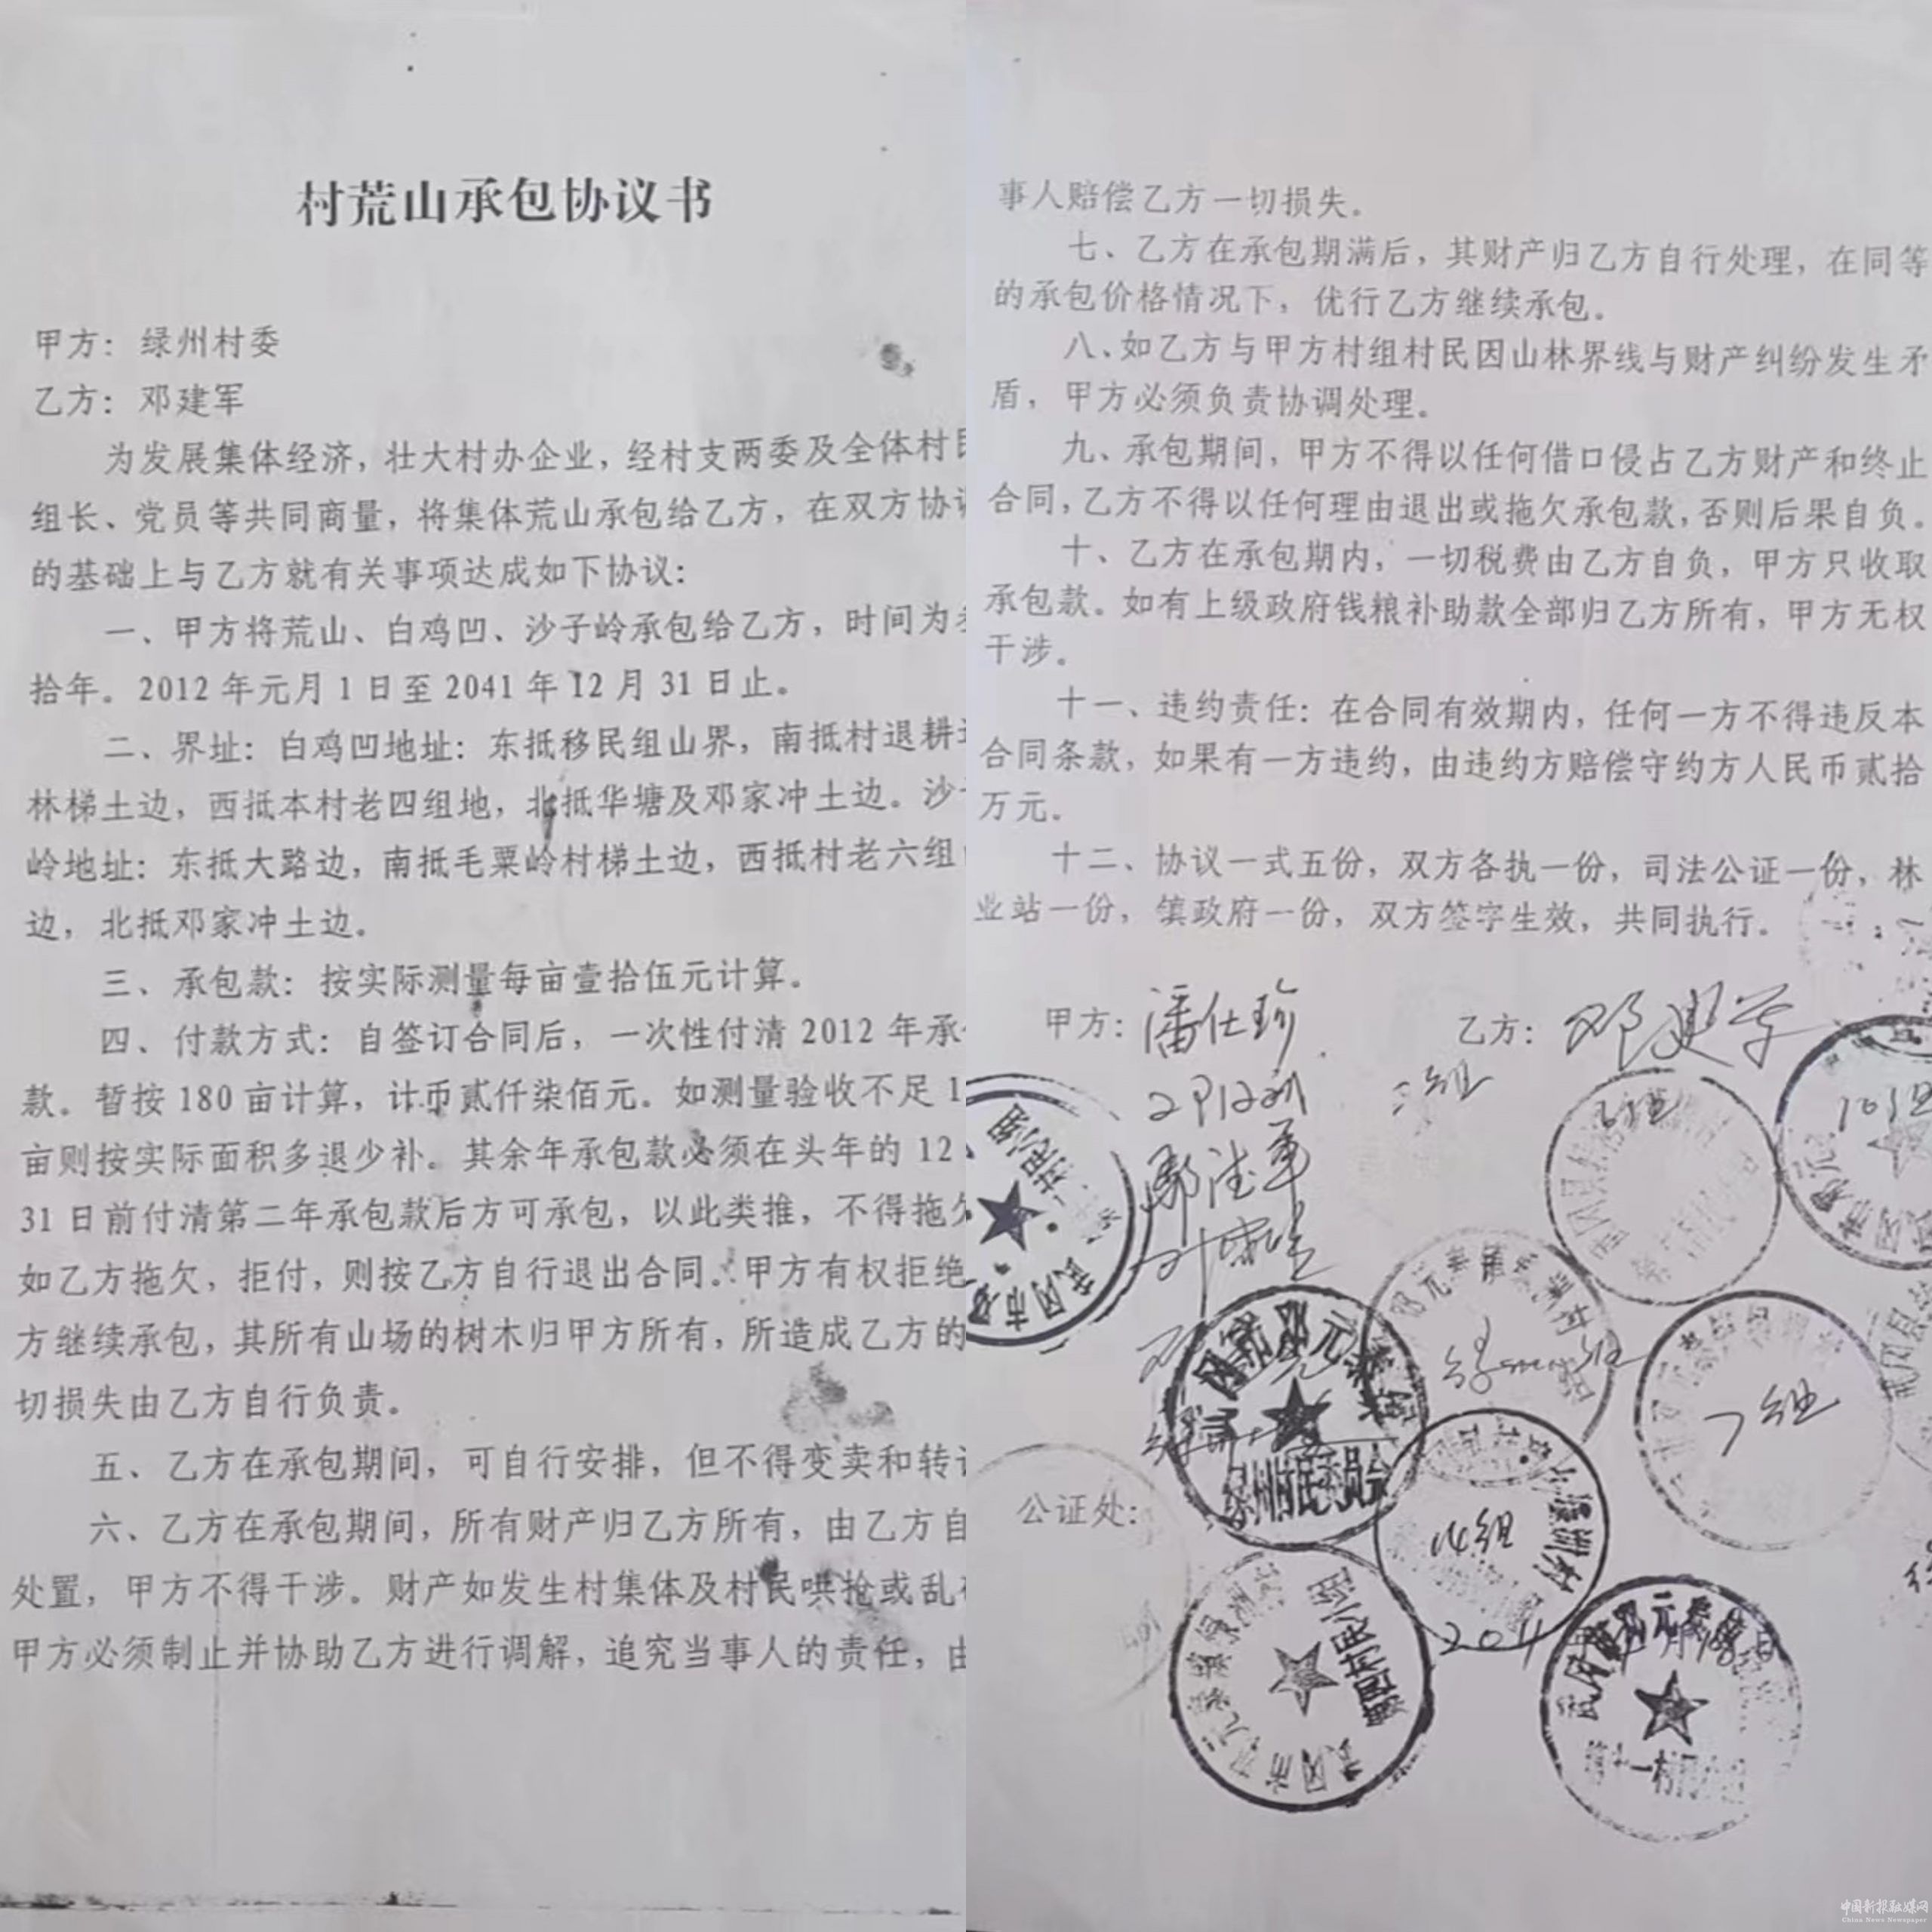 村荒山承包协议书
甲方：绿州村委
乙方：邓建军
为发展集体经济，壮大村办企业，经村支两委及全体村民
组长、党员等共同商量，将集体荒山承包给乙方，在双方协
的基础上与乙方就有关事项达成如下协议：
一、甲方将荒山、白鸡凹、沙子岭承包给乙方，时间为
拾年。2012年元月1日至2041年12月31日止。
二、界址：白鸡凹地址：东抵移民组山界，南抵村退耕
林梯土边，西抵本村老四组地，北抵华塘及邓家冲土边。沙
岭地址：东抵大路边，南抵毛粟岭村梯土边，西抵村老六组
边，北抵邓家冲土边。
三、承包款：按实际测量每亩壹拾伍元计算。
四、付款方式：自签订合同后，一次性付清2012年承
款。暂按180亩计算，计币贰仟柒佰元。如测量验收不足1
亩则按实际面积多退少补。其余年承包款必须在头年的12
31日前付清第二年承包款后方可承包，以此类推，不得拖欠
如乙方拖欠，拒付，则按乙方自行退出合同。甲方有权拒绝
方继续承包，其所有山场的树木归甲方所有，所造成乙方的
切损失由乙方自行负责。
五、乙方在承包期间，可自行安排，但不得变卖和转
六、乙方在承包期间，所有财产归乙方所有，由乙方自
处置，甲方不得干涉。财产如发生村集体及村民哄抢或乱
甲方必须制止并协助乙方进行调解，追究当事人的责任，由
事人赔偿乙方一切损失。
七、乙方在承包期满后，其财产归乙方自行处理，在同等
的承包价格情况下，优行乙方继续承包。
八、如乙方与甲方村组村民因山林界线与财产纠纷发生矛
盾，甲方必须负责协调处理。
九、承包期间，甲方不得以任何借口侵占乙方财产和终止
合同，乙方不得以任何理由退出或拖欠承包款，否则后果自负。
十、乙方在承包期内，一切税费由乙方自负，甲方只收取
承包款。如有上级政府钱粮补助款全部归乙方所有，甲方无权
干涉。
十一、违约责任：在合同有效期内，任何一方不得违反本
合同条款，如果有一方违约，由违约方赔偿守约方人民币贰拾
万元。
十二、协议一式五份，双方各执一份，司法公证一份，林
业站一份，镇政府一份，双方签字生效，共同执行。
甲方：潘仕珍 乙方：邓建军
10组
7组
村民委员会
公证处：
14组
2011
第十一村民小组
中国新报融媒网
China News Newspaper